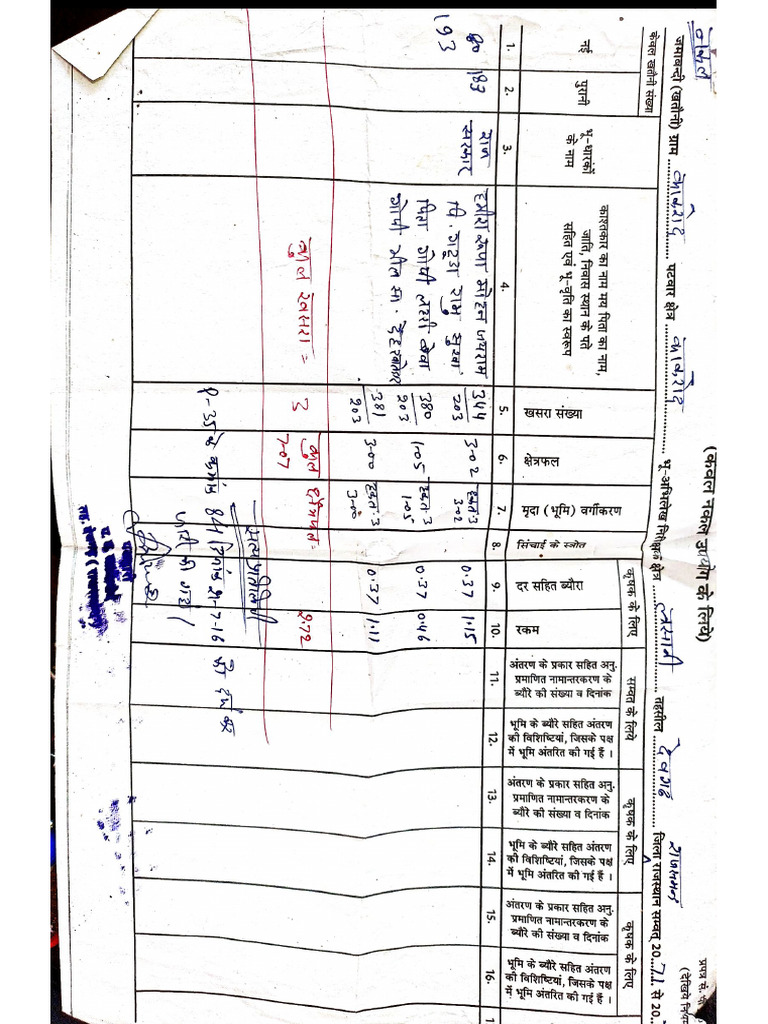 प्रपत्र सं. पी
(देखिये नियम
(केवल नकल उपयोग के लिये)
नकल
जमाबन्दी (खतौनी) ग्राम पटवार क्षेत्र भू-अभिलेख निरीक्षक क्षेत्र लसानी तहसील देवगढ जिला राजसमन्द राजस्थान सम्वत् 2071 से 20
केवल खतौनी संख्या
कृषक के लिए
सम्वत के लिये
कृषक के लिए
कृषक के लिए
नई
पुरानी
भू-धारकों के नाम
काश्तकार का नाम मय पिता का नाम, जाति, निवास स्थान के पते सहित एवं भू-वृति का स्वरूप
खसरा संख्या
क्षेत्रफल
मृदा (भूमि) वर्गीकरण
सिंचाई के स्त्रोत
दर सहित ब्यौरा
रकम
अंतरण के प्रकार सहित अनु. प्रमाणित नामान्तरकरण के ब्यौरे की संख्या व दिनांक
भूमि के ब्यौरे सहित अंतरण की विशिष्टियां, जिसके पक्ष में भूमि अंतरित की गई हैं ।
अंतरण के प्रकार सहित अनु. प्रमाणित नामान्तरकरण के ब्यौरे की संख्या व दिनांक
भूमि के ब्यौरे सहित अंतरण की विशिष्टियां, जिसके पक्ष में भूमि अंतरित की गई हैं ।
अंतरण के प्रकार सहित अनु. प्रमाणित नामान्तरकरण के ब्यौरे की संख्या व दिनांक
भूमि के ब्यौरे सहित अंतरण की विशिष्टियां, जिसके पक्ष में भूमि अंतरित की गई हैं ।
1. 2. 3. 4. 5. 6. 7. 8. 9. 10. 11. 12. 13. 14. 15. 16. 1
183 राज हमीरा रूपा मोहन जयराम 344/203 3-02 3 3-02 0.37 1.15
193 सरकार पि. रामु सुखा 380/203 1-05 3 1-05 0.37 0.46
पिता गोपी लसी बेवा
गोपी भील सा. 381/203 3-00 3 3-00 0.37 1.11
कुल खसरा = 3 कुल क्षेत्रफल = 7-07 2.72
P-35 के क्रमांक 841 दिनांक 21-7-16 को दर्ज कर
जारी की गई।